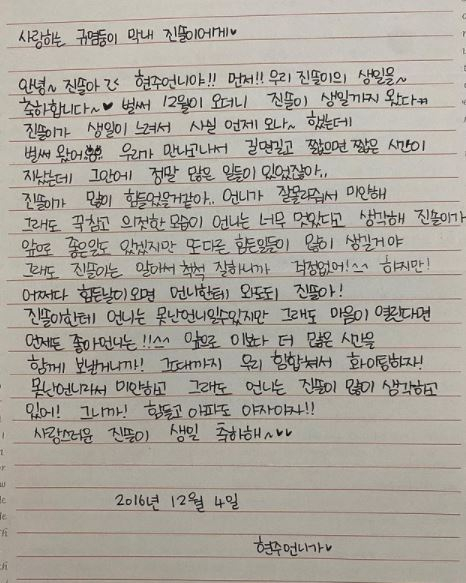 사랑하는 귀염둥이 막내 진뜰이에게♥
안녕~ 진뜰아 현주언니야!! 먼저!! 우리 진뜰이의 생일을~
축하합니다~♥ 벌써 12월이 오더니 진뜰이 생일까지 왔다
진뜰이가 생일이 느려서 사실 언제 오나~ 했는데
벌써 왔어 우리가 만나고나서 길면길고 짧으면 짧은 시간이
지났는데 그안에 정말 많은 일들이 있었잖아..
진뜰이가 많이 힘들었을거같아.. 언니가 잘몰라줘서 미안해
그래도 꾹참고 의젓한 모습이 언니는 너무 멋있다고 생각해 진뜰이가
앞으로 좋은일도 있겠지만 또다른 힘든일들이 많이 생길거야
그래도 진뜰이는 알아서 척척 잘하니까 걱정없어!^^ 하지만!
어쩌다 힘든날이오면 언니한테 와도되 진뜰아!
진뜰이한테 언니는 못난언니일수있지만 그래도 마음이 열린다면
언제든 좋아언니는!!^^ 앞으로 이보다 더 많은 시간을
함께 보낼거니까! 그때까지 우리 힘합쳐서 화이팅하자!
못난언니라서 미안하고 그래도 언니는 진뜰이 많이 생각하고
있어! 그니까! 힘들고 아파도 아자아자!!
사랑스러운 진뜰이 생일 축하해~♥♥
2016년 12월 4일
현주언니가♥